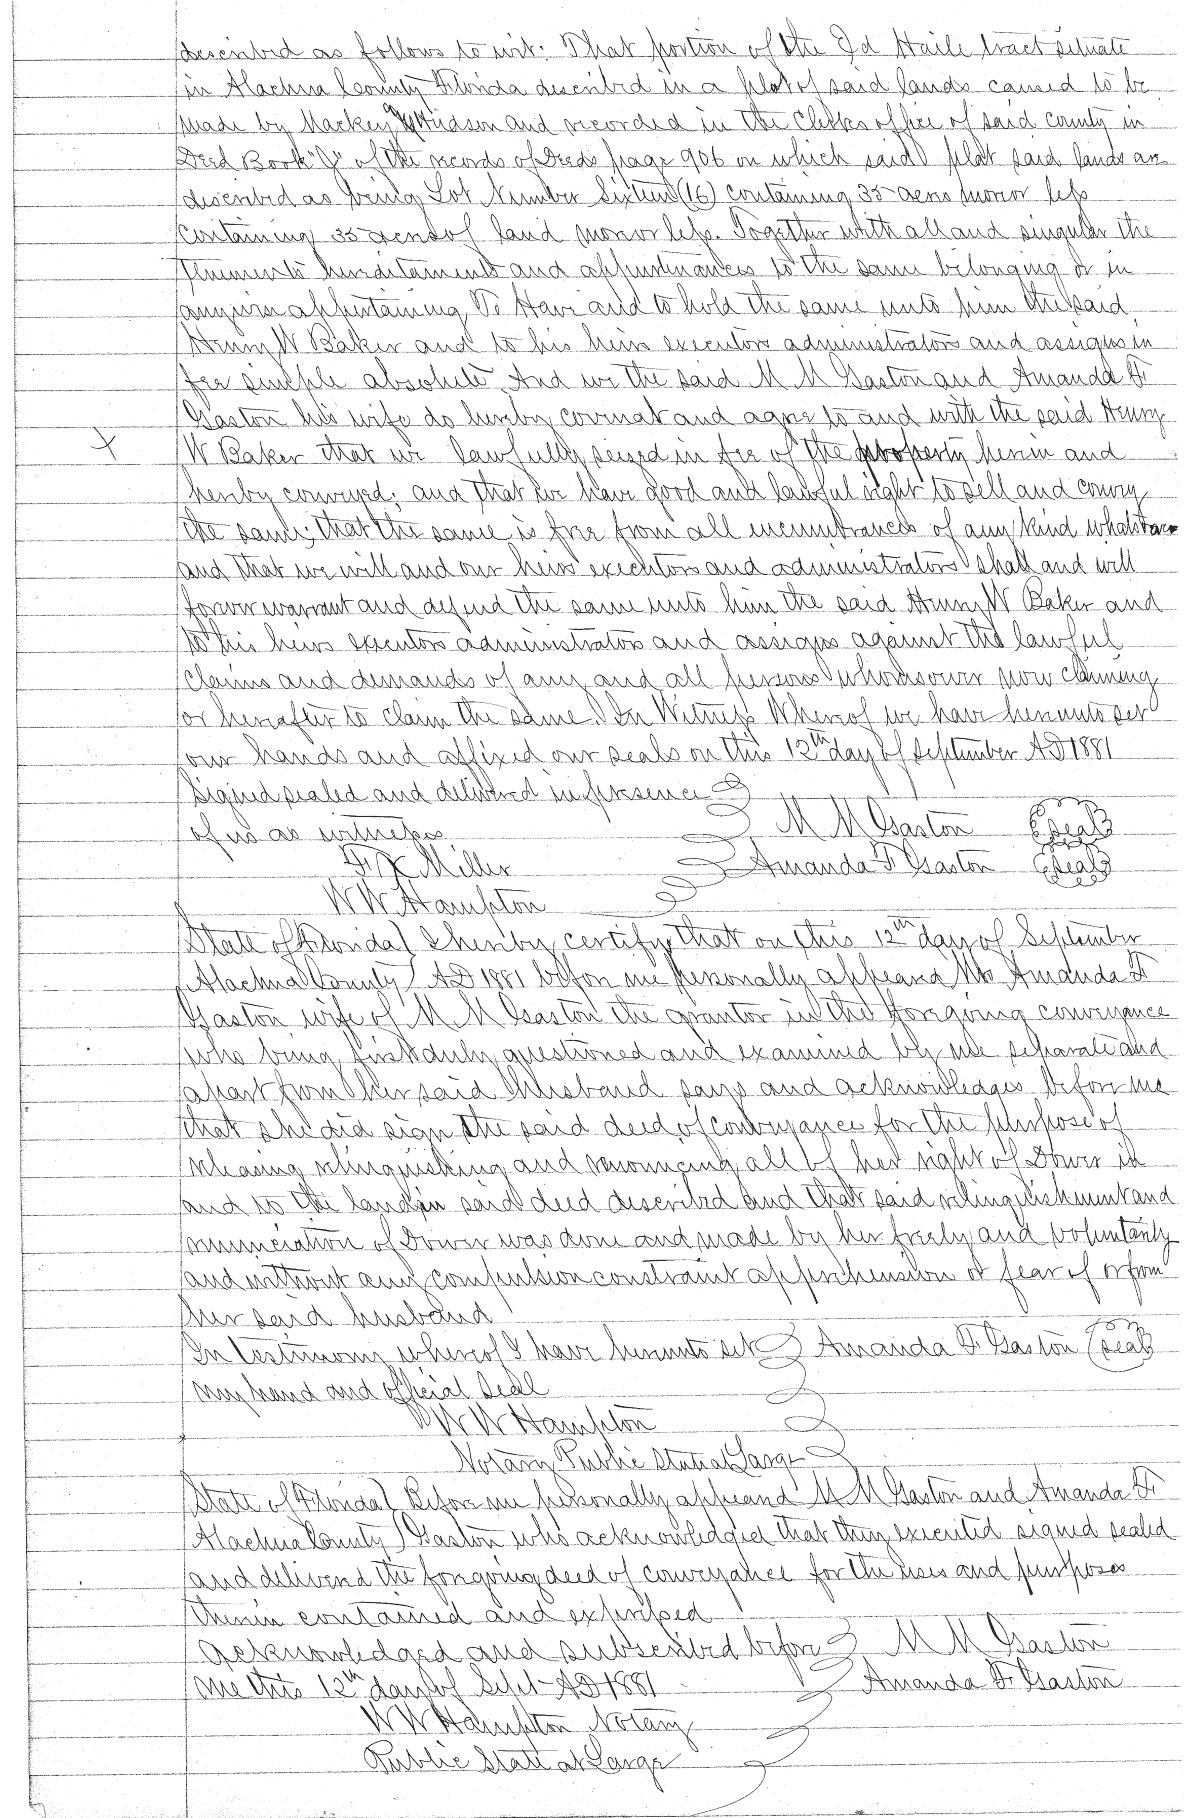 described as follows to wit: That portion of the Ed Haile tract situate
in Alachua County Florida described in a plot of said lands caused to be
made by Mackey & Hudson and recorded in the Clerks office of said county in
Deed Book "J" of the records of Deeds page 906 on which said plat said lands are
described as being Lot Number Sixteen (16) containing 35 acres more or less
containing 35 acres of land more or less. Together with all and singular the
tenements hereditaments and appurtenances to the same belonging or in
anywise appertaining To Have and to hold the same unto him the said
Henry W Baker and to his heirs executors administrators and assigns in
fee simple absolute. And we the said M M Gaston and Amanda F
Gaston his wife do hereby covenat and agree to and with the said Henry
X W Baker that we lawfully seized in fee of the property herein and
hereby conveyed; and that we have good and lawful right to sell and convey
the same; that the same is free from all incumbrances of any kind whatsoever
and that we will and our heirs executors and administrators shall and will
forever warrant and defend the same unto him the said Henry W Baker and
to his heirs executors administrators and assigns against the lawful
claims and demands of any and all persons whomsoever now claiming
or hereafter to claim the same. In Witness Whereof we have hereunto set
our hands and affixed our seals on this 12th day of September AD 1881
Signed sealed and delivered in presence
of us as witness M M Gaston (seal)
F X Miller Amanda F Gaston (seal)
W W Hampton
State of Florida } I hereby certify that on this 12th day of September
Alachua County } AD 1881 before me personally appeared Mrs Amanda F
Gaston wife of M M Gaston the grantor in the foregoing conveyance
who being first duly questioned and examined by me separate and
apart from her said husband says and acknowledges before me
that she did sign the said deed of conveyance for the purpose of
releasing relinquishing and renouncing all of her right of Dower in
and to the land in said deed described and that said relinquishment and
renunciation of Dower was done and made by her freely and voluntarily
and without any compulsion constraint apprehension or fear of or from
her said husband
In testimony whereof I have hereunto set Amanda F Gaston (seal)
my hand and official seal
W W Hampton
Notary Public State at Large
State of Florida } Before me personally appeared M M Gaston and Amanda F
Alachua County } Gaston who acknowledged that they executed signed sealed
and delivered the foregoing deed of conveyance for the uses and purposes
therein contained and expressed
Acknowledged and subscribed before M M Gaston
me this 12th day of Sept AD 1881 Amanda F Gaston
W W Hampton Notary
Public State at Large